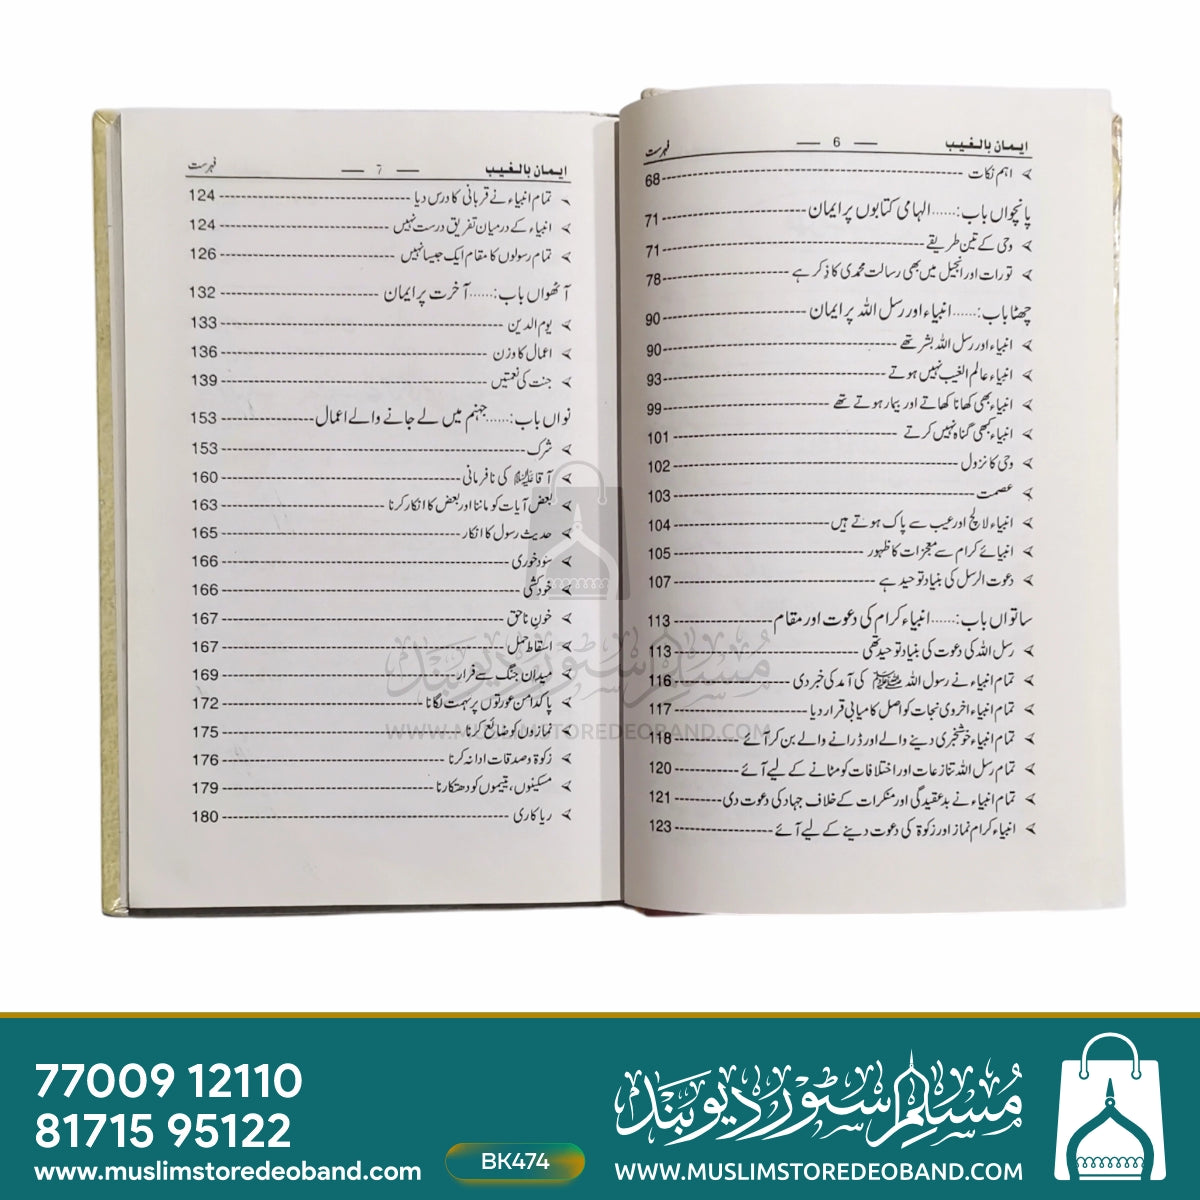 ایمان بالغیب — 6 — فہرست
اہم نکات 68
پانچواں باب:......الہامی کتابوں پر ایمان 71
وحی کے تین طریقے 71
تورات اور انجیل میں بھی رسالت محمدی کا ذکر ہے 78
چھٹا باب:......انبیاء اور رسل اللہ پر ایمان 90
انبیاء اور رسل اللہ بشر تھے 90
انبیاء عالم الغیب نہیں ہوتے 93
انبیاء بھی کھانا کھاتے اور بیمار ہوتے تھے 99
انبیاء کبھی گناہ نہیں کرتے 101
وحی کا نزول 102
عصمت 103
انبیاء لالچ اور عیب سے پاک ہوتے ہیں 104
انبیائے کرام سے معجزات کا ظہور 105
دعوت الرسل کی بنیاد توحید ہے 107
ساتواں باب:......انبیاء کرام کی دعوت اور مقام 113
رسل اللہ کی دعوت کی بنیاد توحید تھی 113
تمام انبیاء نے رسول اللہ ﷺ کی آمد کی خبر دی 116
تمام انبیاء اخروی نجات کو اصل کامیابی قرار دیا 117
تمام انبیاء خوشخبری دینے والے اور ڈرانے والے بن کر آئے 118
تمام رسل اللہ تنازعات اور اختلافات کو مٹانے کے لیے آئے 120
تمام انبیاء نے بدعقیدگی اور منکرات کے خلاف جہاد کی دعوت دی 121
انبیاء کرام نماز اور زکوۃ کی دعوت دینے کے لیے آئے 123
ایمان بالغیب — 7 — فہرست
تمام انبیاء نے قربانی کا درس دیا 124
انبیاء کے درمیان تفریق درست نہیں 124
تمام رسولوں کا مقام ایک جیسا نہیں 126
آٹھواں باب:......آخرت پر ایمان 132
یوم الدین 133
اعمال کا وزن 136
جنت کی نعمتیں 139
نواں باب:......جہنم میں لے جانے والے اعمال 153
شرک 153
آقا ﷺ کی نافرمانی 160
بعض آیات کو ماننا اور بعض کا انکار کرنا 163
حدیث رسول کا انکار 165
سود خوری 166
خودکشی 166
خون ناحق 167
اسقاط حمل 167
میدان جنگ سے فرار 169
پاکدامن عورتوں پر تہمت لگانا 172
نمازوں کو ضائع کرنا 175
زکوۃ و صدقات ادا نہ کرنا 176
مسکینوں، یتیموں کو دھتکارنا 179
ریا کاری 180
مسلم سٹور دیوبند
WWW.MUSLIMSTOREDEOBAND.COM
77009 12110
81715 95122
www.muslimstoredeoband.com
BK474
مسلم سٹور دیوبند
WWW.MUSLIMSTOREDEOBAND.COM